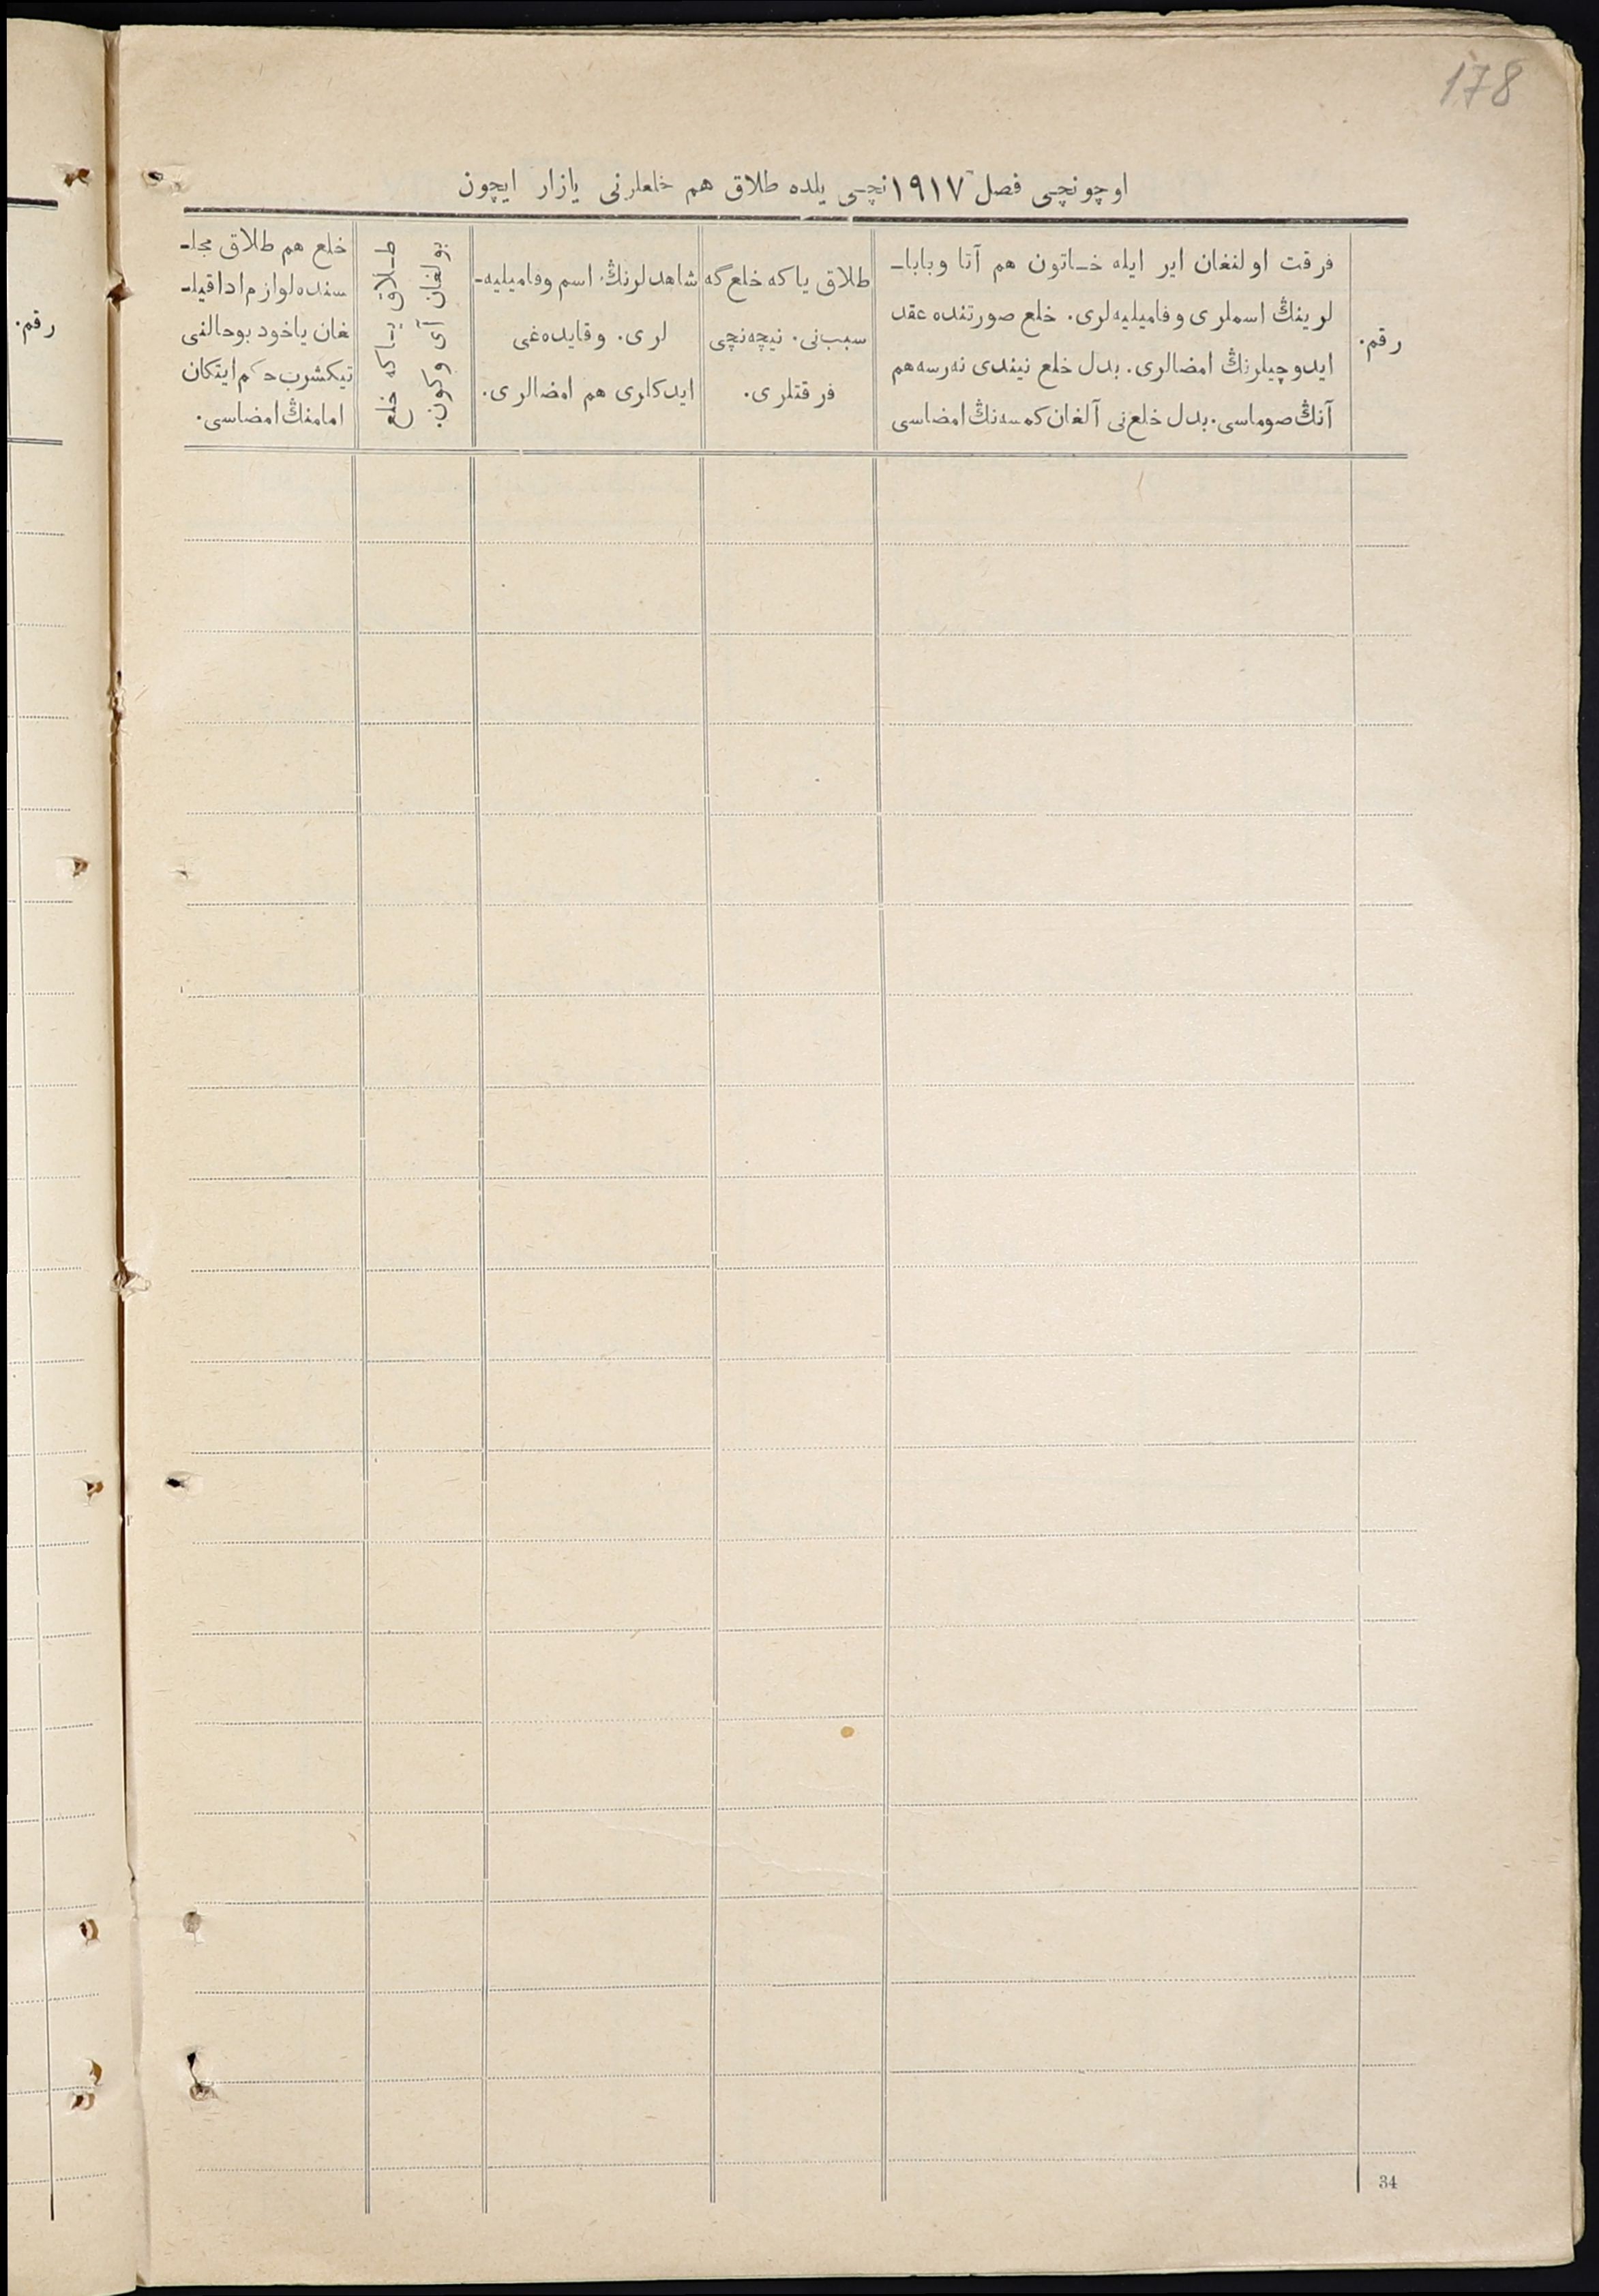 178
اوچونچی فصل ١٩١٧نچی یلده طلاق هم خلعلرنی یازار ایچون
رقم.
فرقت اولنغان ایر ایله خاتون هم آتا وبابا-
لرینڭ اسملری وفامیلیه‌لری. خلع صورتنده عقد
ایدوچیلرنڭ امضالری. بدل خلع نیندی نه‌رسه هم
آنڭ صوماسی. بدل خلع‌نی آلغان کمسه‌نڭ امضاسی
طلاق یاکه خلع‌گه
سبب‌نی. نیچه‌نچی
فرقتلری.
شاهدلرنڭ اسم وفامیلیه-
لری. وقایده‌غی
ایدکلری هم امضالری.
طلاق یاکه خلع
بولغان آی وکون.
خلع هم طلاق مجلـ
سنده لوازم ادا قیلـ
غان یاخود بوحالنی
تیکشرب حکم ایتکان
امامنڭ امضاسی.
رقم.
34